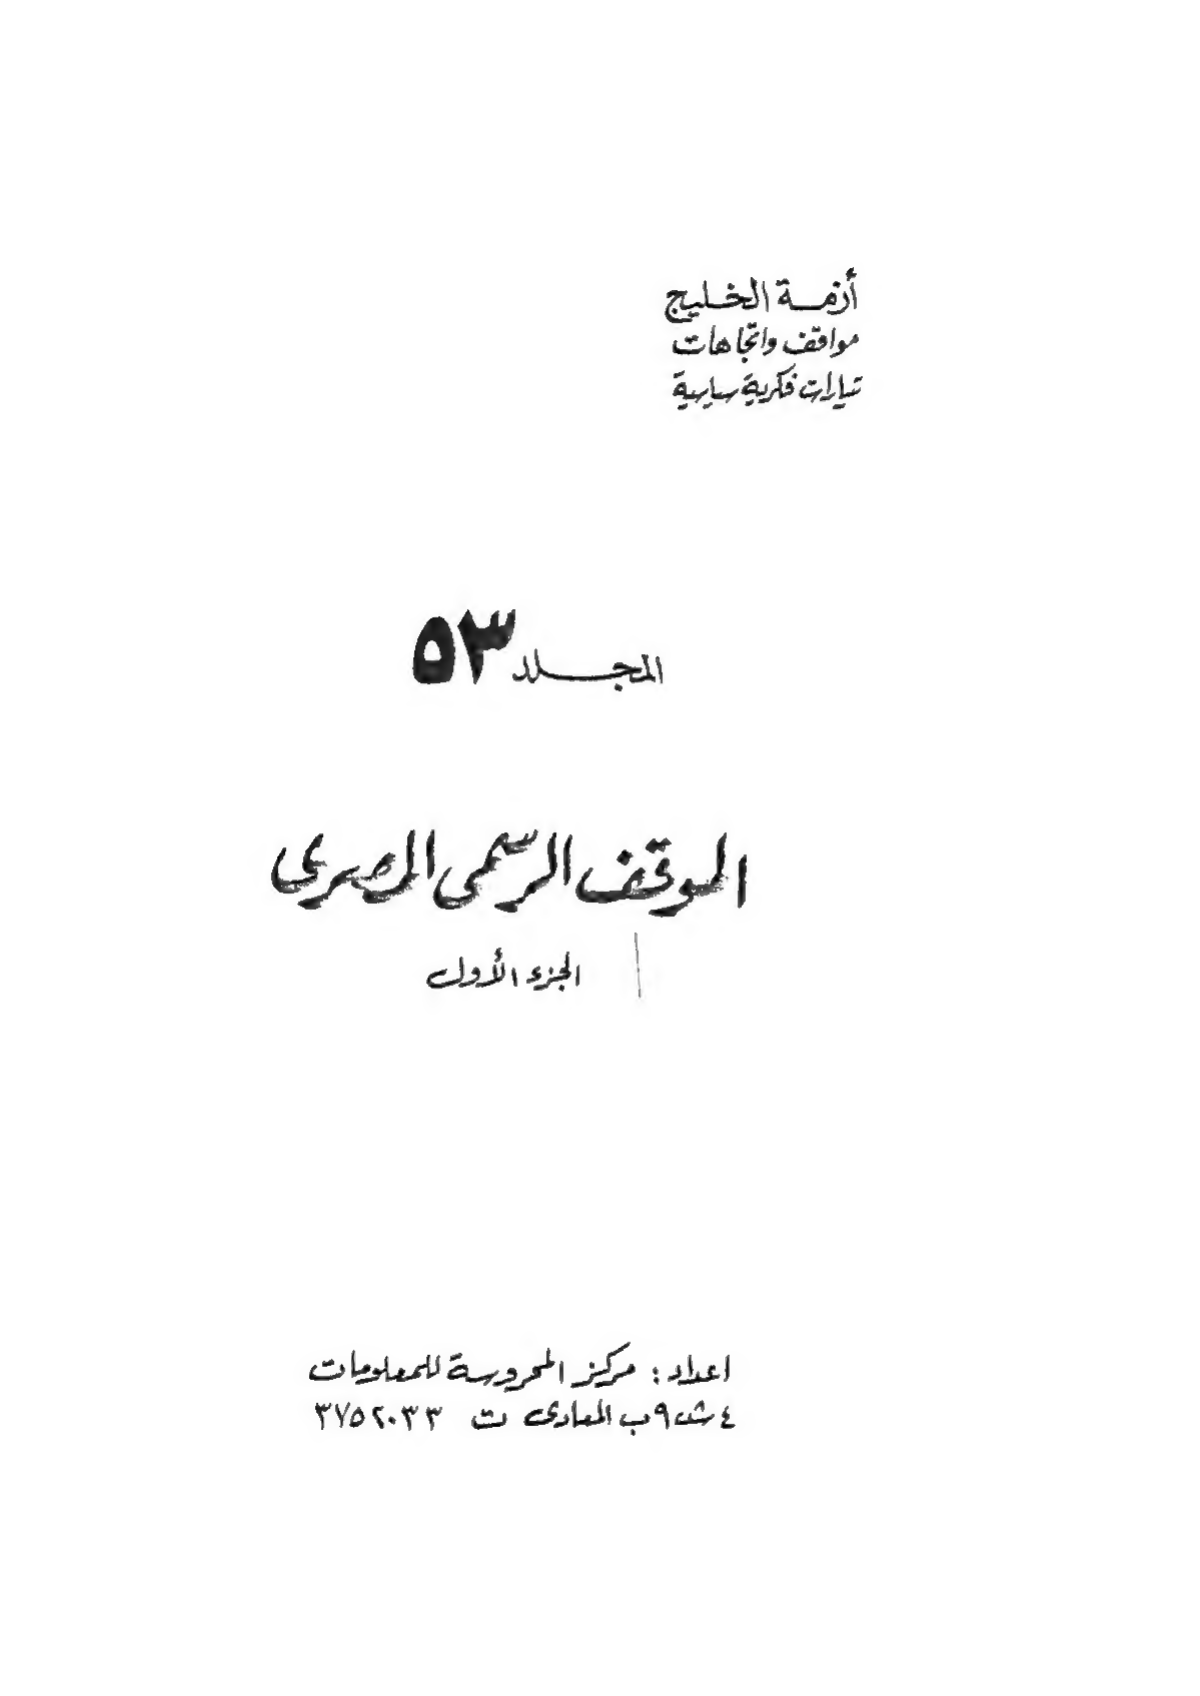 أزمة الخليج
مواقف واتجاهات
تيارات فكرية سياسية
المجلد ٥٣
الموقف الرسمى المصرى
الجزء الأول
اعداد : مركز المحروسة للمعلومات
٤ ش ٩ب المعادى ت ٣٧٥٢٠٣٣